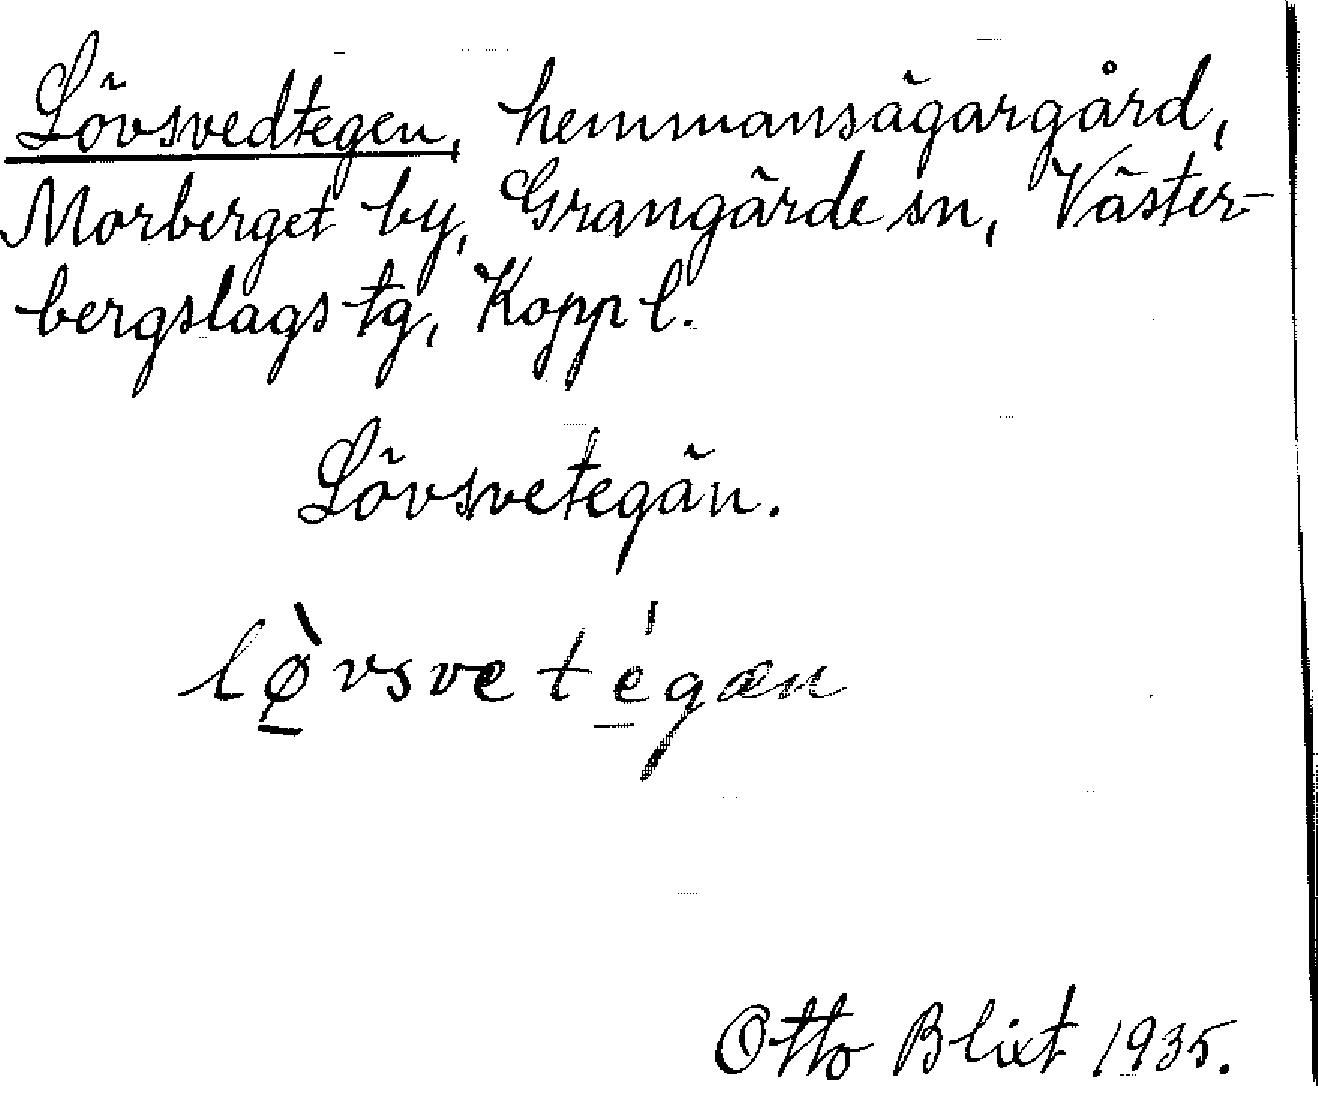 Lövsvedtegen, hemmansägargård,
Morberget by, Grangärde sn, Väster-
bergslags tg, Kopp l.
Lövsvetegän.
lø̱̀vsveté̱gæn
Otto Blixt 1935.